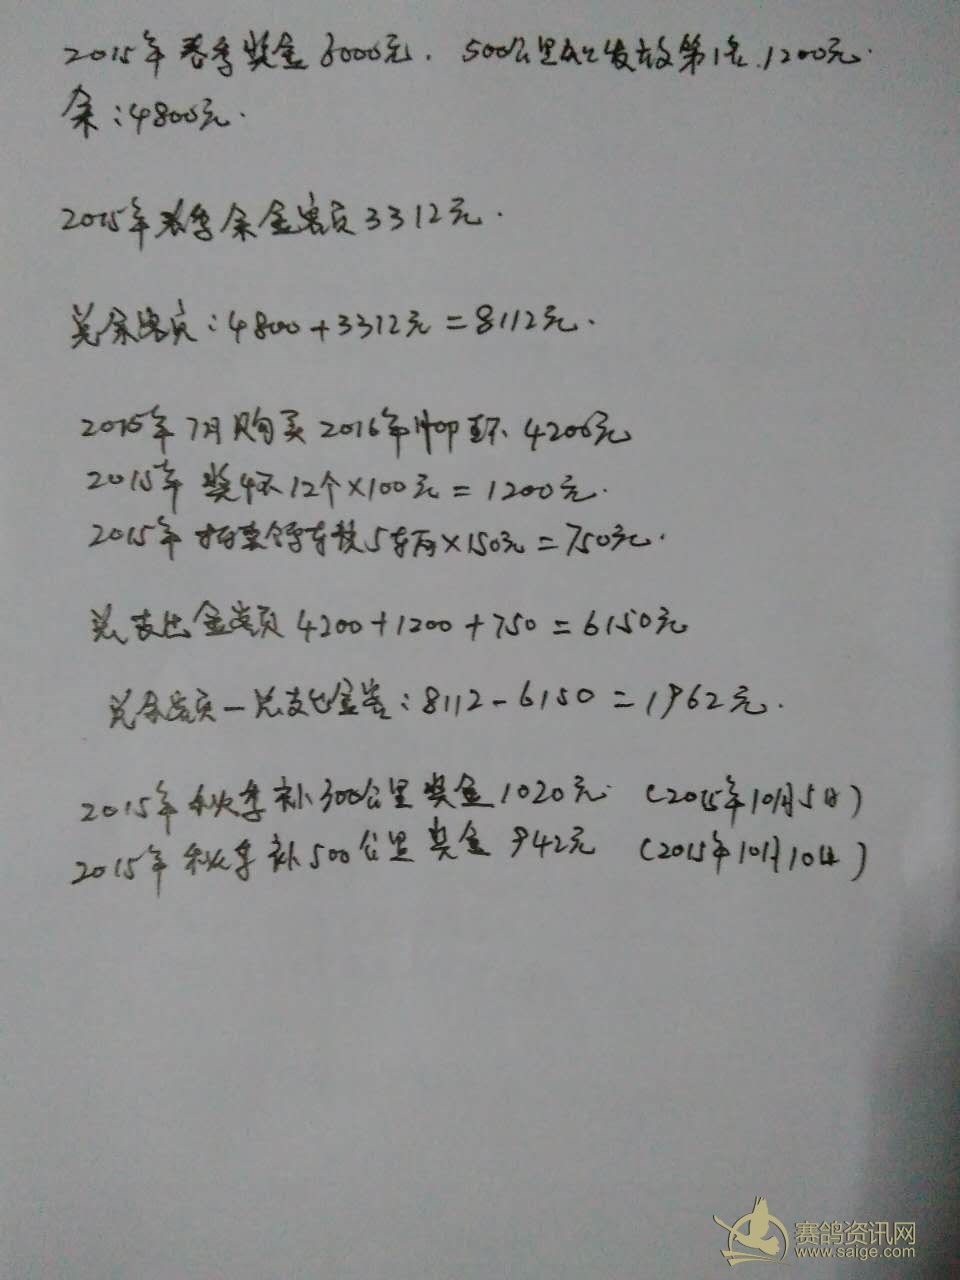 2015年春季奖金6000元. 500公里已发放第1名.1200元.
余:4800元.
2015年春季余金额3312元.
总余额:4800+3312元=8112元.
2015年7月购买2016年 环 4200元
2015年 奖杯12个×100元=1200元.
2015年 车 5车 ×150元=750元.
总支出金额 4200+1200+750=6150元
总余额-总支出金额:8112-6150=1962元.
2015年秋季补300公里奖金1020元 (2015年10月5日)
2015年秋季补500公里奖金942元 (2015年10月10日)
赛鸽资讯网
www.saige.com